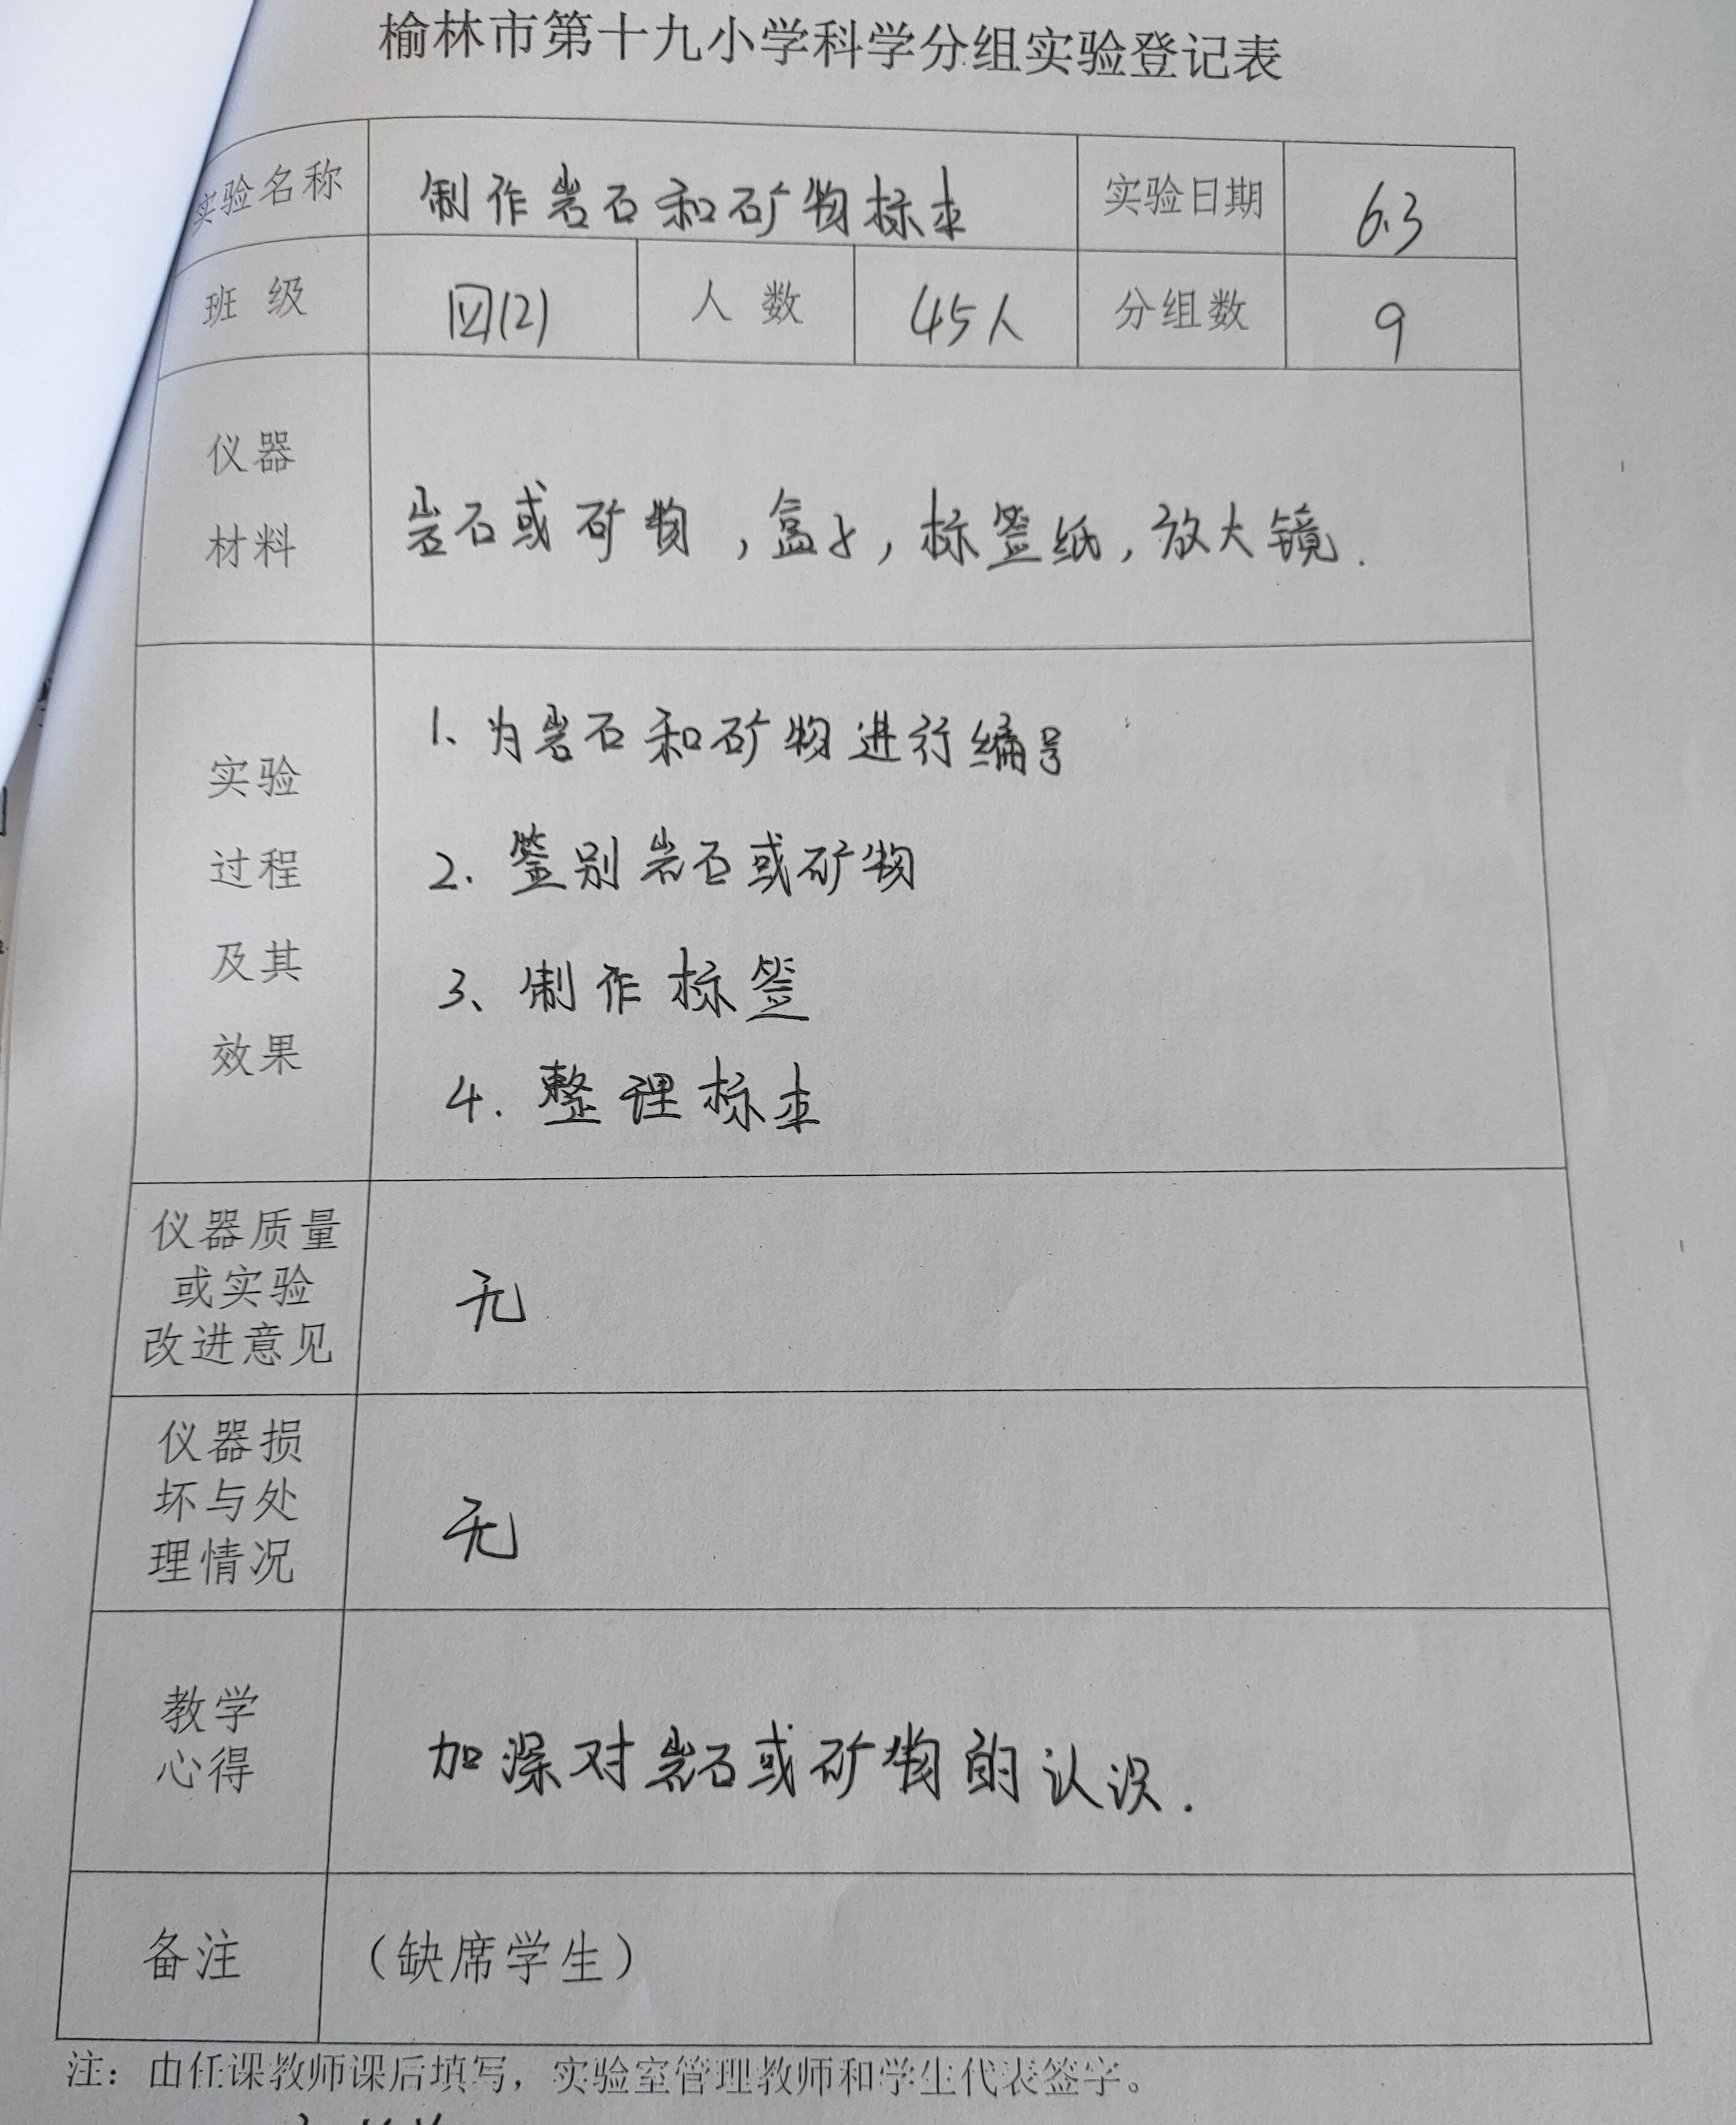 榆林市第十九小学科学分组实验登记表
实验名称 制作岩石和矿物标本 实验日期 6.3
班 级 四(2) 人 数 45人 分组数 9
仪器
材料
岩石或矿物，盒子，标签纸，放大镜.
实验
过程
及其
效果
1、为岩石和矿物进行编号
2. 鉴别岩石或矿物
3、制作标签
4. 整理标本
仪器质量
或实验
改进意见
无
仪器损
坏与处
理情况
无
教学
心得
加深对岩石或矿物的认识.
备注 （缺席学生）
注：由任课教师课后填写，实验室管理教师和学生代表签字。